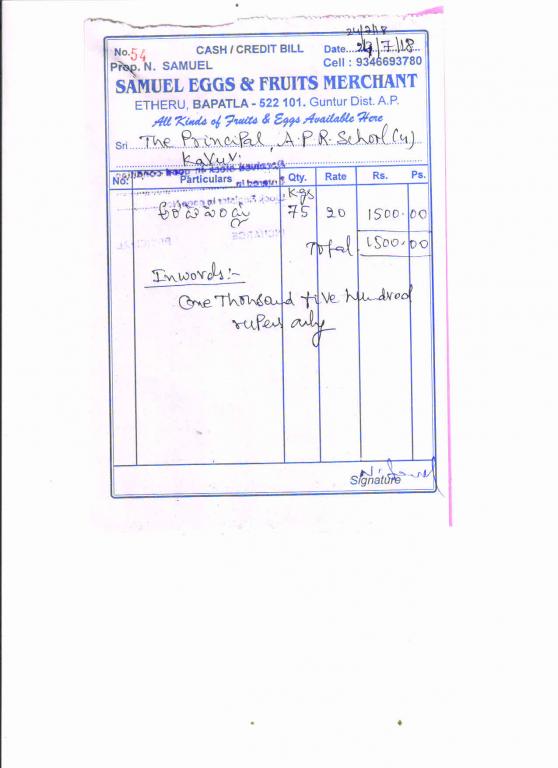 24/7/18
No. 54 CASH / CREDIT BILL Date... 24/7/18
Prop. N. SAMUEL Cell : 9346693780
SAMUEL EGGS & FRUITS MERCHANT
ETHERU, BAPATLA - 522 101. Guntur Dist. A.P.
All Kinds of Fruits & Eggs Available Here
Sri The Principal, A.P.R. School (U)
Kavuri
No. Particulars Qty. Rate Rs. Ps.
Kgs
75 20 1500.00
Total 1500.00
Inwords:-
One Thousand five hundred
rupees only
Signature